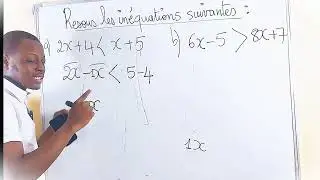 Résous les inéquations suivantes :
a) 2x+4 < x+5 b) 6x-5 > 8x+7
2x-x < 5-4
x
1x